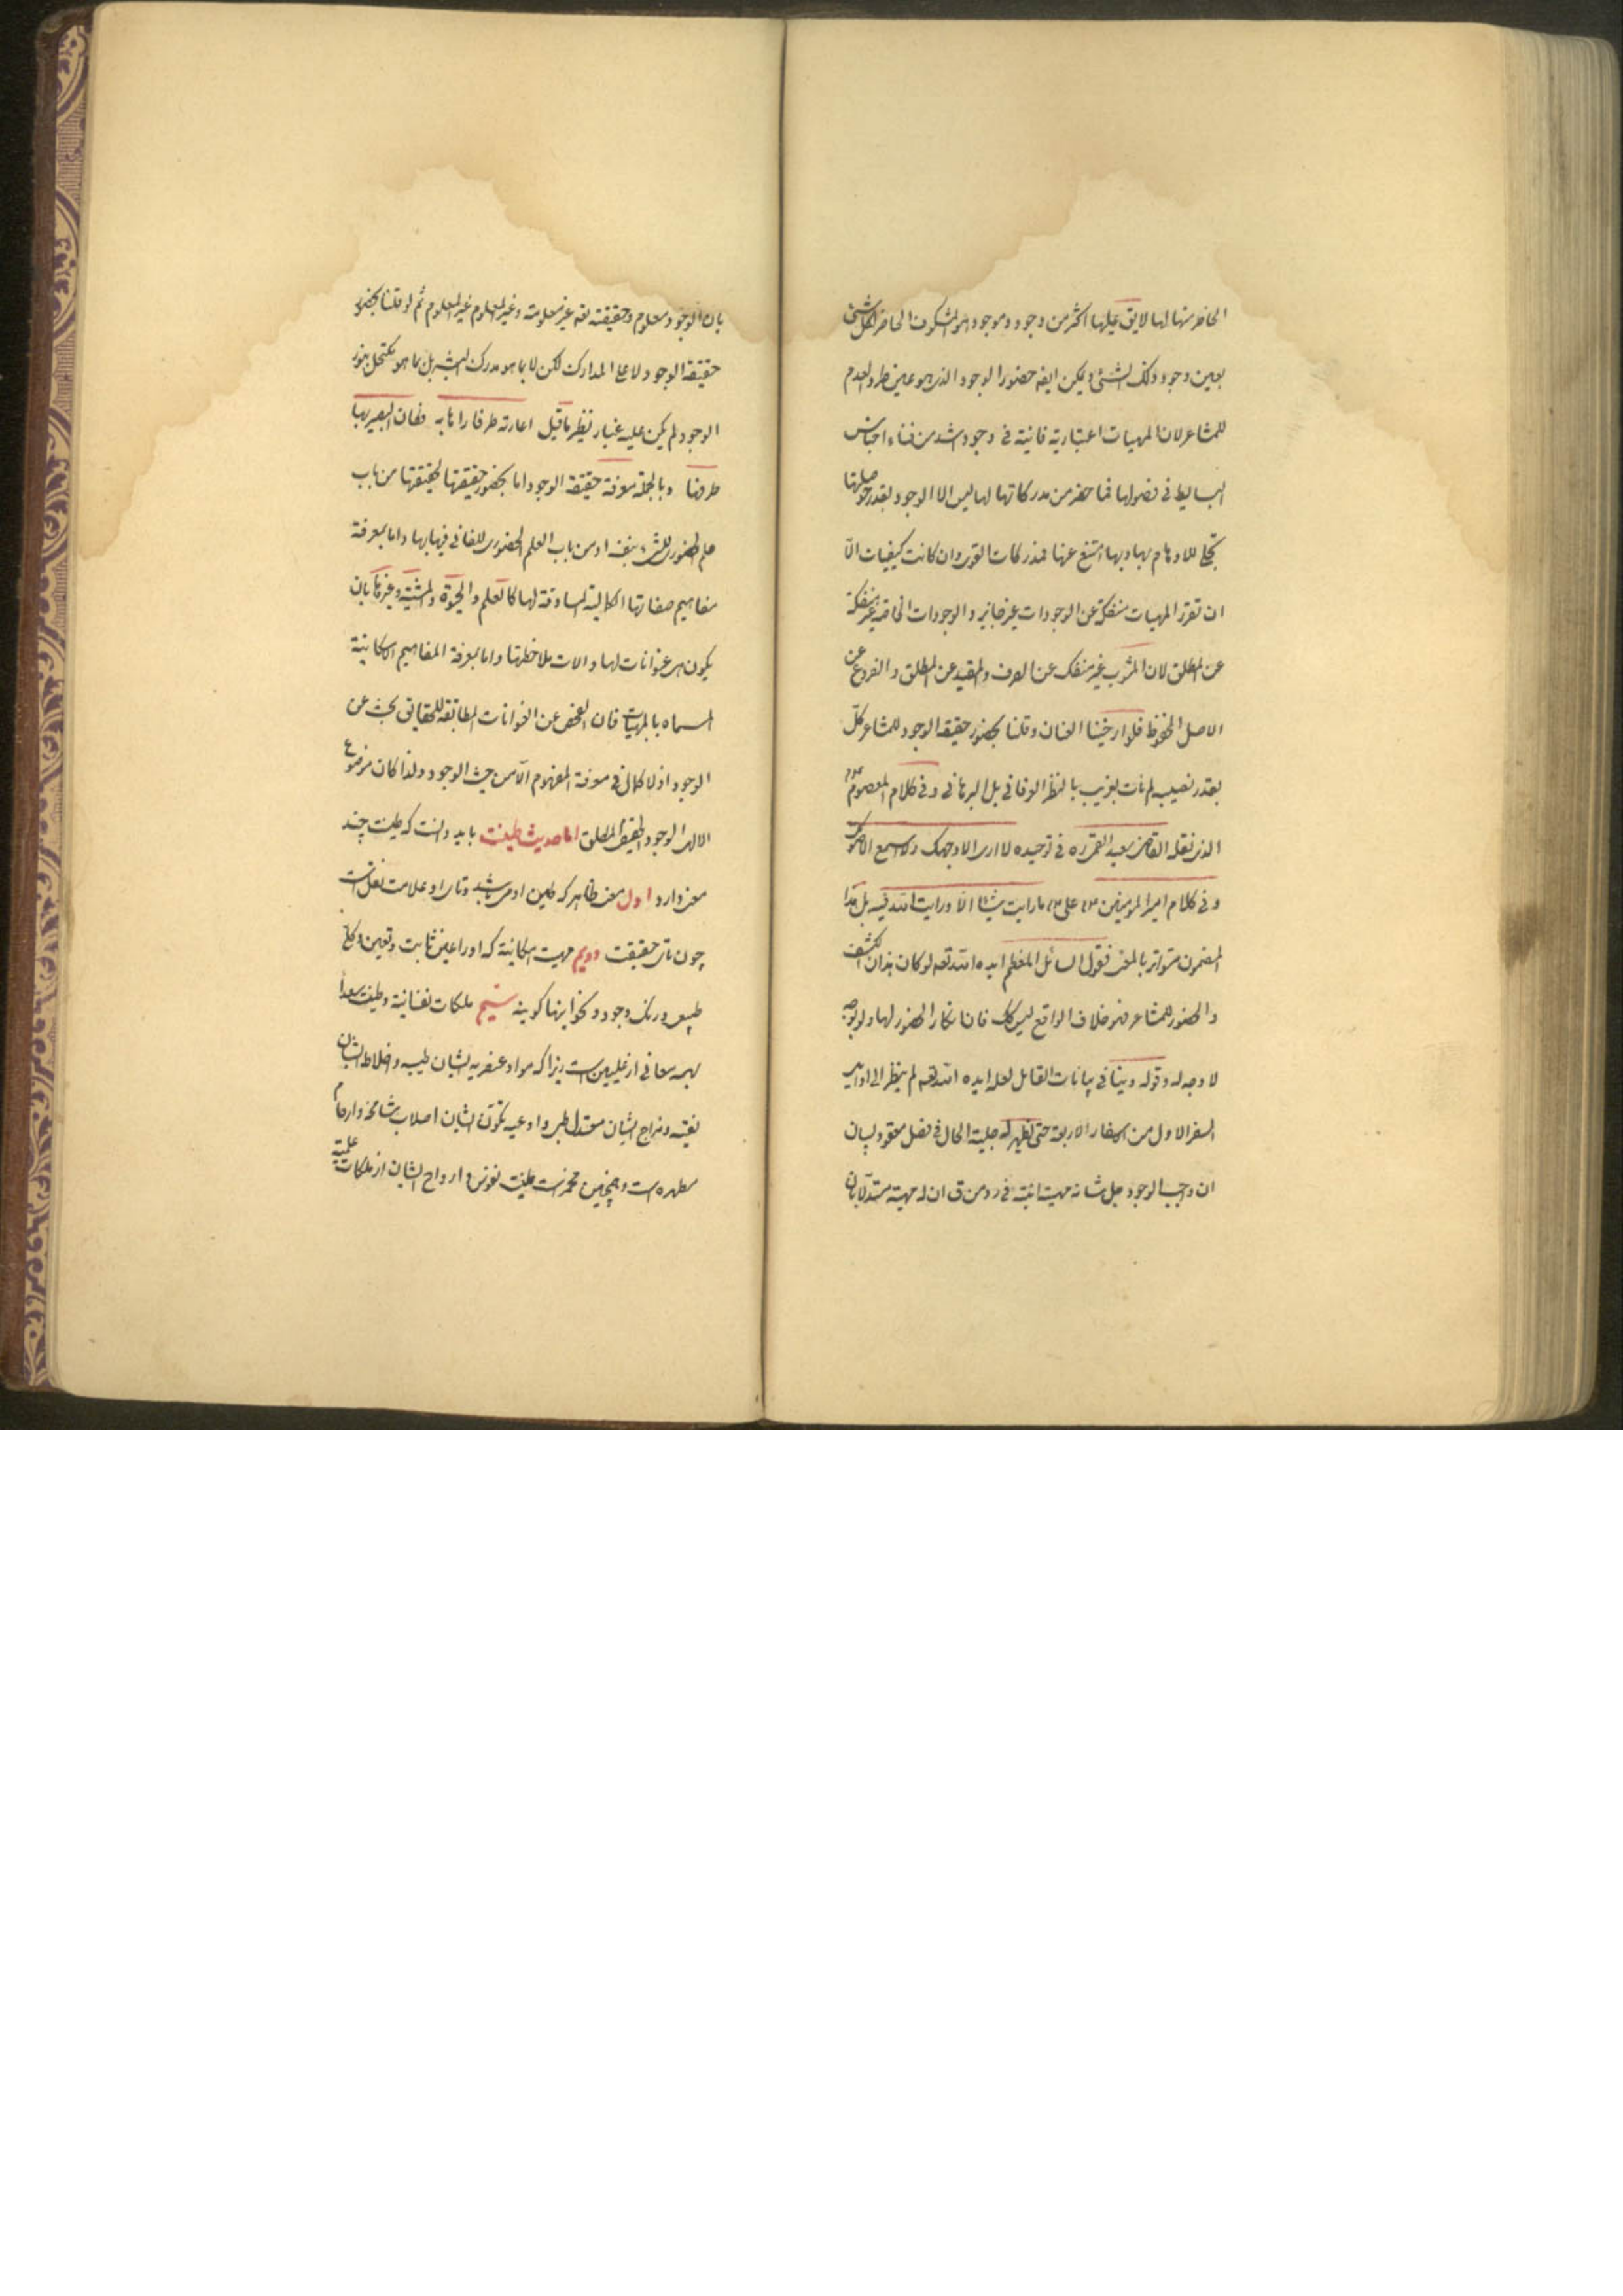 الحاضر منها لها لا يق عليها اكثر من وجود وموجود هو المشكوك الحاضر لكل شئ
بعين وجود ذلك الشئ ويكن ايضه حضور الوجود الذى هو عين طرد العدم
للمشاعر لان المهيات اعتبارية فانية فى وجود اشد من فناء اجناس
البسايط فى فصولها فما حضر من مدركاتها لها ليس الا الوجود بقدر حوصلتها
تجلى للاوهام بها وبها امتنع عنها فمدركات القوى وان كانت كيفيات الا
ان تقرر المهيات منفكة عن الوجودات غير جايز والوجودات الخاصة غير منفكة
عن المطلق لان المشوب غير منفك عن الصرف والمقيد عن المطلق والفروع عن
الاصل المحفوظ فلو ارخينا العنان وقلنا بحضور حقيقة الوجود للمشاعر كل
بقدر نصيبه لم نات بغريب بالنظر العرفانى بل البرهانى وفى كلام المعصوم
الذى نقله القاضى سعيد القمى ره فى توحيده لا ارى الا وجهك ولا اسمع الا صوتك
وفى كلام امير المؤمنين على ما رايت شيئا الا ورايت الله فيه بل هذا
المضمون متواتر بالمعنى فقول السائل المعظم ايده الله تعه لو كان بذاك الكشف
والحضور للمشاعر فهو خلاف الواقع ليس كك فان انكار الحضور لها ولو بوجه
لا وجه له وقوله وينافى بيانات القايل لعله ايده الله تعه لم ينظر الى اوايل
السفر الاول من الاسفار الاربعة حتى يظهر له جلية الحال فى فصل معقود لبيان
ان واجب الوجود جل شانه مهيته انيته فى رد من ق ان له مهية مستدلا بان
بان الوجود معلوم وحقيقته تعه غير معلومة وغير المعلوم غير المعلوم ثم لو قلنا بحضور
حقيقة الوجود لاعلى المدارك لكن لا بما هو مدرك البشر بل بما هو مكتحل بنور
الوجود لم يكن عليه غبار نظير ما قيل اعارته طرفا راها به فكان البصير بها
طرفها وبالجملة معرفة حقيقة الوجود اما بحضور حقيقتها لحقيقتها من باب
علم الحضورى للشئ بنفسه او من باب العلم الحضورى للفانى فيها بها واما بمعرفة
مفاهيم صفاتها الكمالية المساوقة لها كالعلم والحيوة والمشية وغيرها بان
يكون هى عنوانات لها والات ملاحظتها واما بمعرفة المفاهيم الامكانية
المسماه بالمهيات فان الفحص عن العنوانات المطابقة للحقايق بحث عن
الوجود اذ لا كمال فى معرفة المفهوم الا من حيث الوجود ولذا كان موضوع
الالهى الوجود الحقيقى المطلق اما حديث طينت بايد دانست كه طينت چند
معنى دارد اول معنى ظاهر كه طين ادمى باشد وتاى او علامت نقل است
چون تاى حقيقت دويم مهيت امكانية كه او را عين ثابت وتعين وكلى
طبيعى ورنك وجود ونحو اينها كويند سيم ملكات نفسانية وطينت سعدا
بهمه معانى از عليين است زيرا كه مواد عنصريه ايشان طيبه واخلاط ايشان
نقيه ومزاج ايشان معتدل طبى واوعيه تكون ايشان اصلاب شامخه وارحام
مطهره است وهمچنين مخمرست طينت نفوس و ارواح ايشان از ملكات علمية